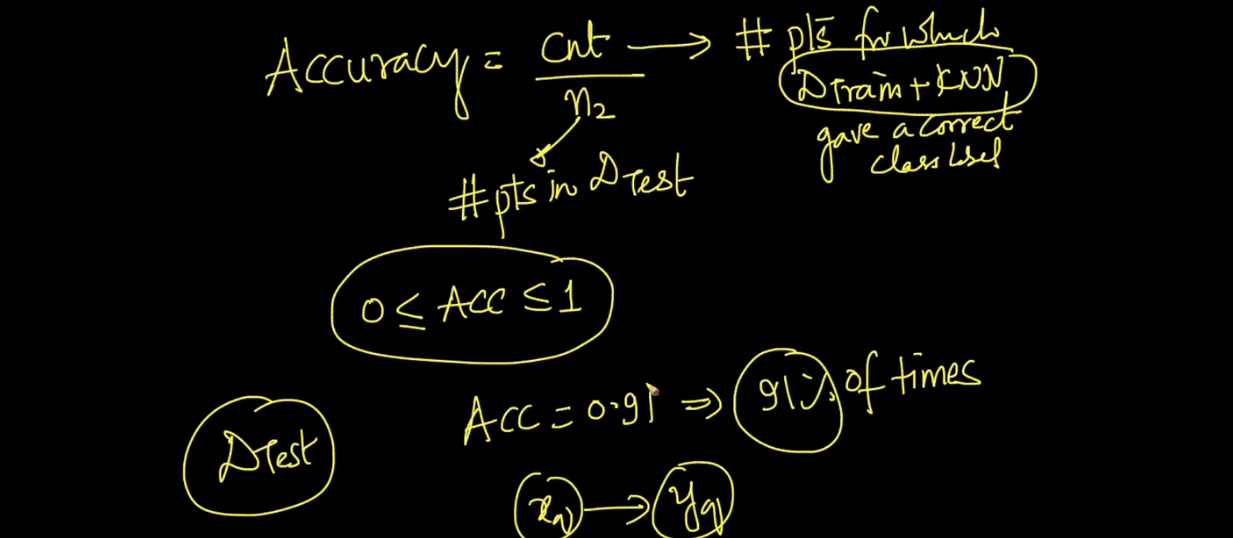 Accuracy = cnt → # pts for which
n2 DTrain + KNN
gave a correct
class label
# pts in DTest
0 ≤ ACC ≤ 1
ACC = 0.91 ⇒ 91% of times
DTest
xq → yq